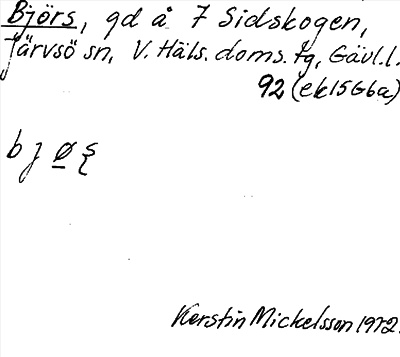 Björs, gd å 7 Sidskogen,
Järvsö sn, V. Häls. doms. tg, Gävl.l.
92 (ek 15G6a)
b j ø̲ ξ
Kerstin Mickelsson 1972.